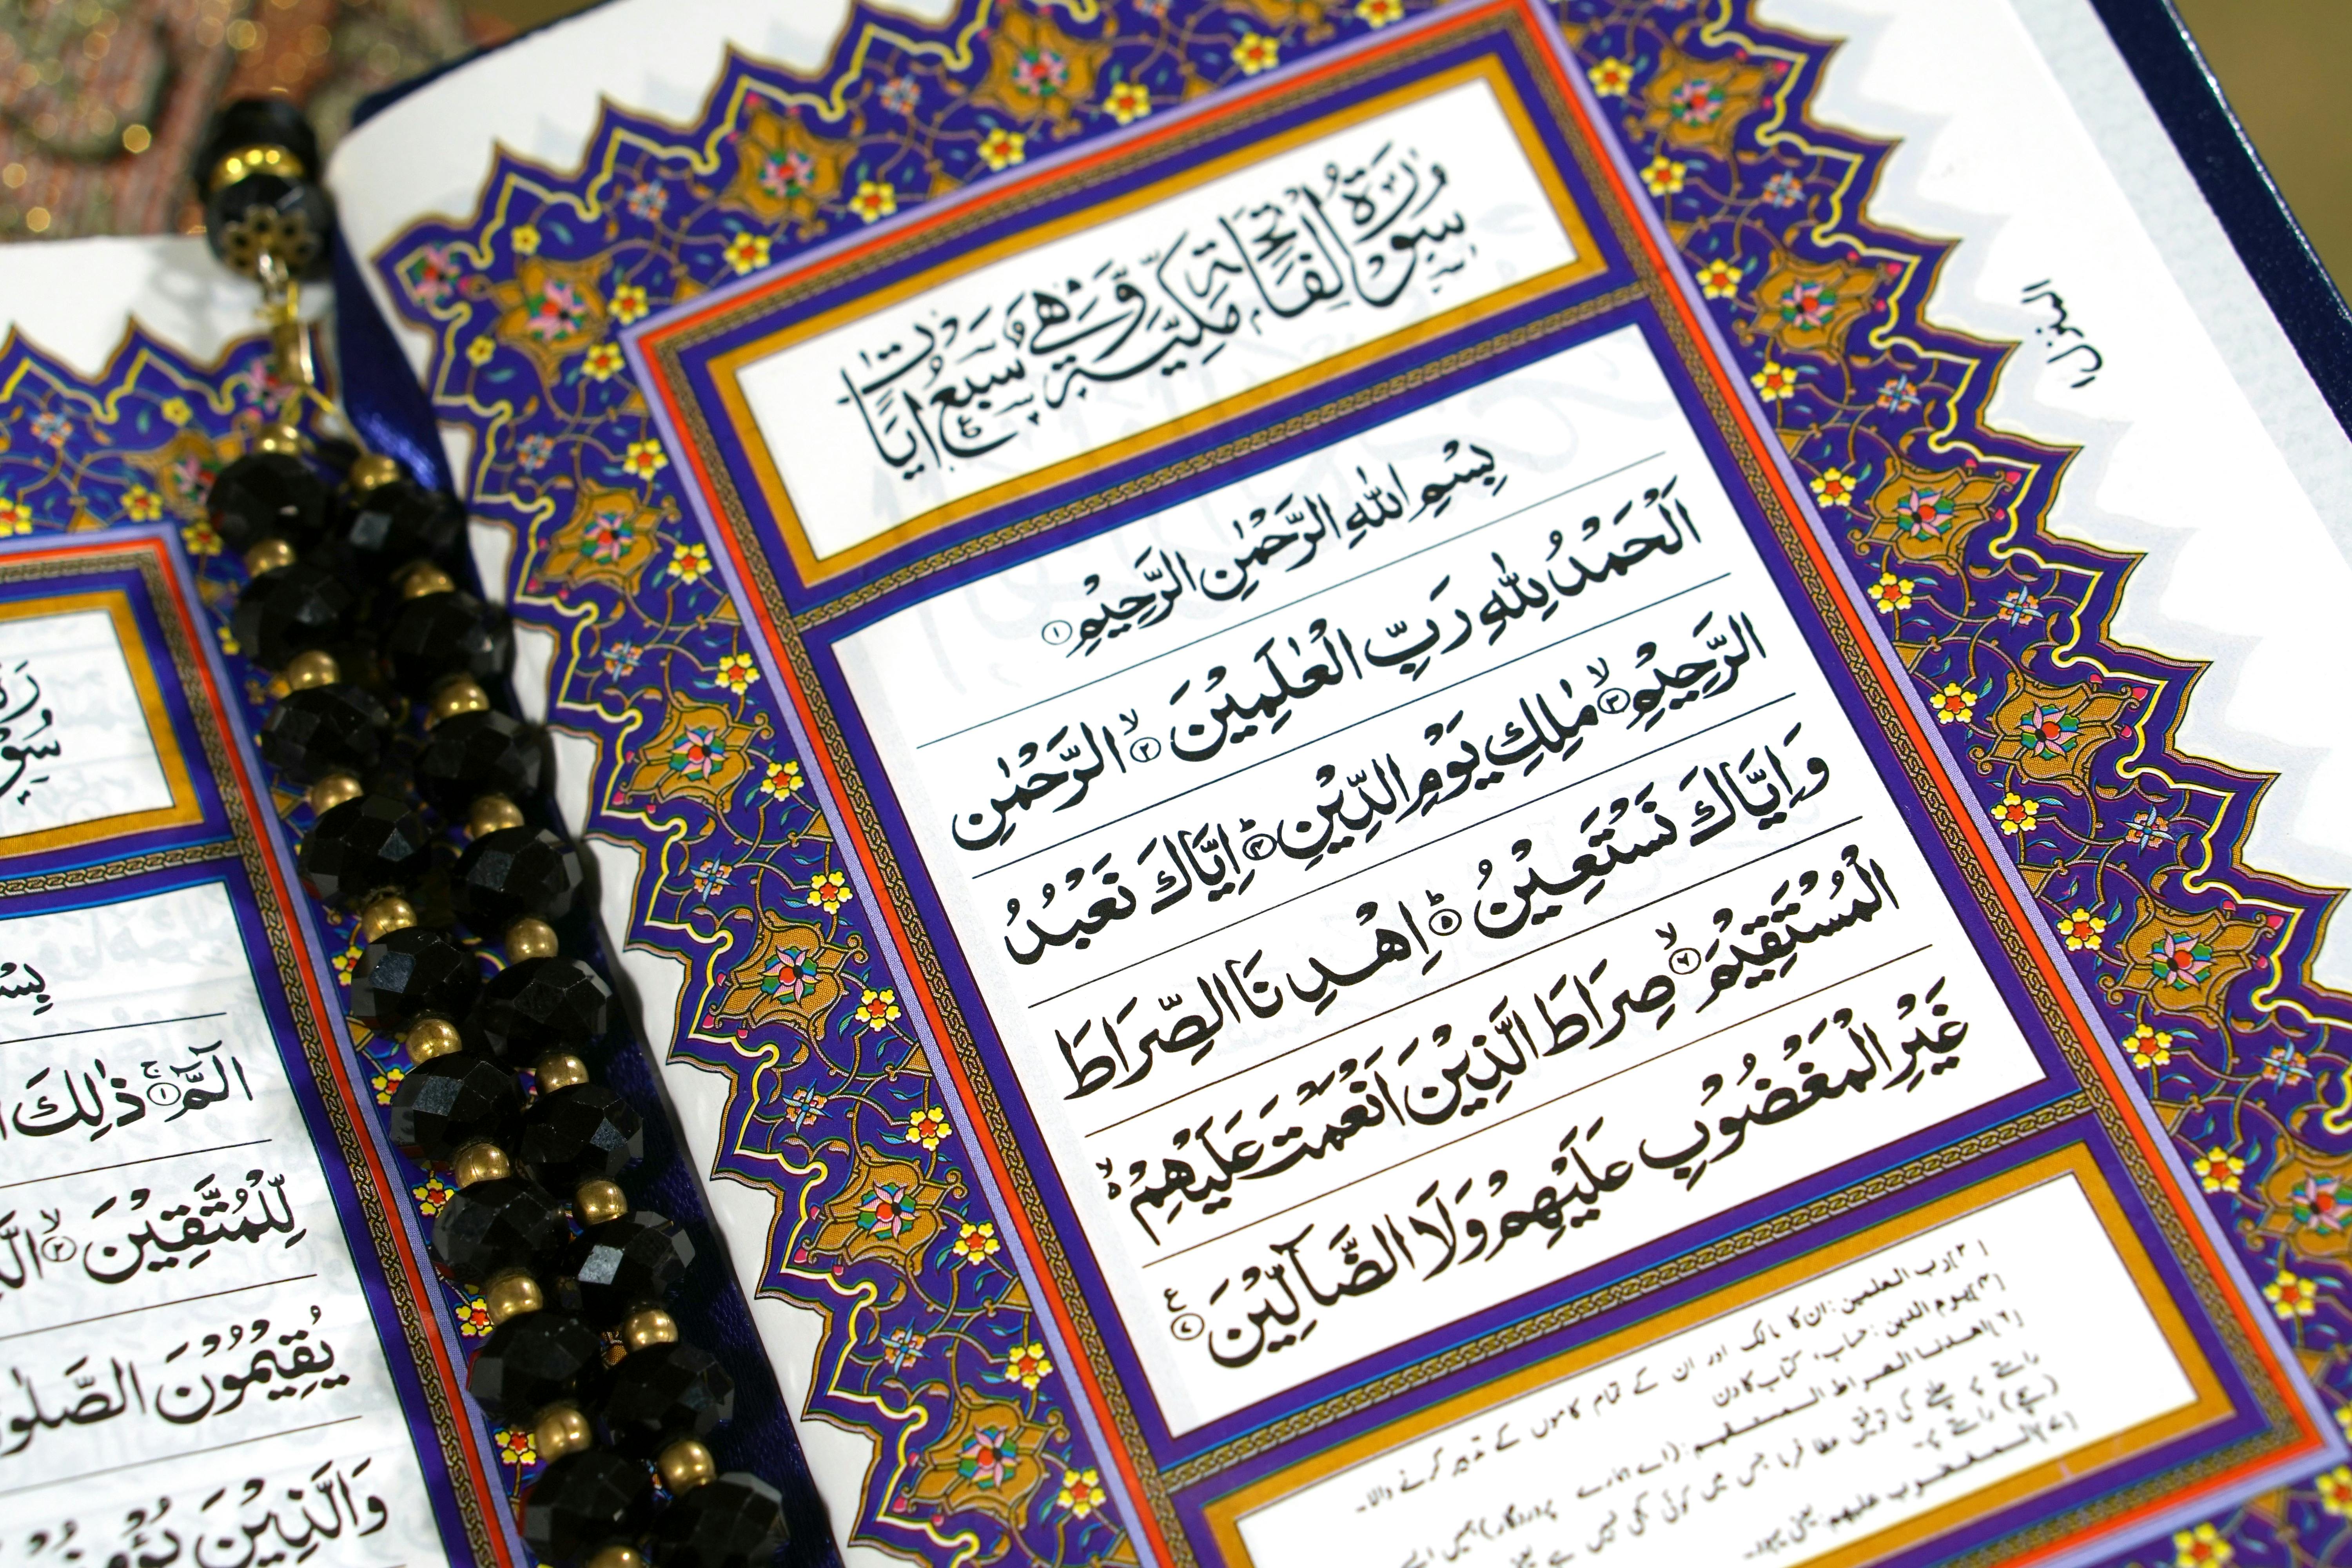 سُوْرَةُ الْفَاتِحَةِ مَكِّيَّةٌ وَّهِيَ سَبْعُ اٰيَاتٍ
بِسْمِ اللّٰهِ الرَّحْمٰنِ الرَّحِيْمِ ۝١
اَلْحَمْدُ لِلّٰهِ رَبِّ الْعٰلَمِيْنَ ۝٢ۙ الرَّحْمٰنِ
الرَّحِيْمِ ۝٣ۙ مٰلِكِ يَوْمِ الدِّيْنِ ۝٤ؕ اِيَّاكَ نَعْبُدُ
وَاِيَّاكَ نَسْتَعِيْنُ ۝٥ؕ اِهْدِنَا الصِّرَاطَ
الْمُسْتَقِيْمَ ۝٦ۙ صِرَاطَ الَّذِيْنَ اَنْعَمْتَ عَلَيْهِمْ ۙ۬
غَيْرِ الْمَغْضُوْبِ عَلَيْهِمْ وَلَا الضَّآلِّيْنَ ۝٧ ع
[٢] رب العلمين: ان کا مالک اور ان کے تمام کاموں کے تدبیر کرنے والا۔
[٤] يوم الدين: حساب، کتاب کا دن
[٦] اهدنا الصراط المستقيم: (اے ہمارے پروردگار) ہمیں ایسے
راستے پر چلنے کی توفیق عطا فرما جس میں کوئی کجی نہیں ہے یعنی
راستے پر۔
[٧] المغضوب عليهم: یعنی یہود۔
المنزل
سُوْرَةُ
بِسْ
الٓمّٓ ۝١ۚ ذٰلِكَ
لِّلْمُتَّقِيْنَ ۝٢ۙ
يُقِيْمُوْنَ الصَّلٰو
وَالَّذِيْنَ يُؤْمِنُ